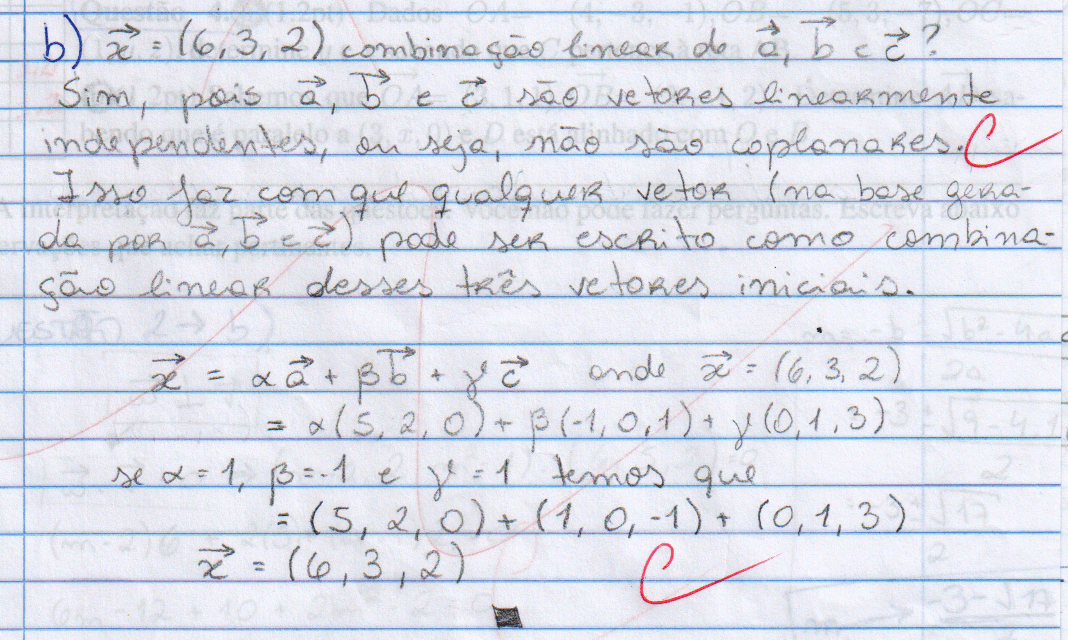 b) x⃗ = (6,3,2) combinação linear de a⃗, b⃗ e c⃗?
Sim, pois a⃗, b⃗ e c⃗ são vetores linearmente
independentes, ou seja, não são coplanares. C
Isso faz com que qualquer vetor (na base gera-
da por a⃗ b⃗ e c⃗) pode ser escrito como combina-
ção linear desses três vetores iniciais.
x⃗ = αa⃗ + βb⃗ + γc⃗ onde x⃗ = (6, 3, 2)
= α(5, 2, 0) + β(-1, 0, 1) + γ(0, 1, 3)
se α = 1, β = -1 e γ = 1 temos que
= (5, 2, 0) + (1, 0, -1) + (0, 1, 3)
x⃗ = (6, 3, 2) C